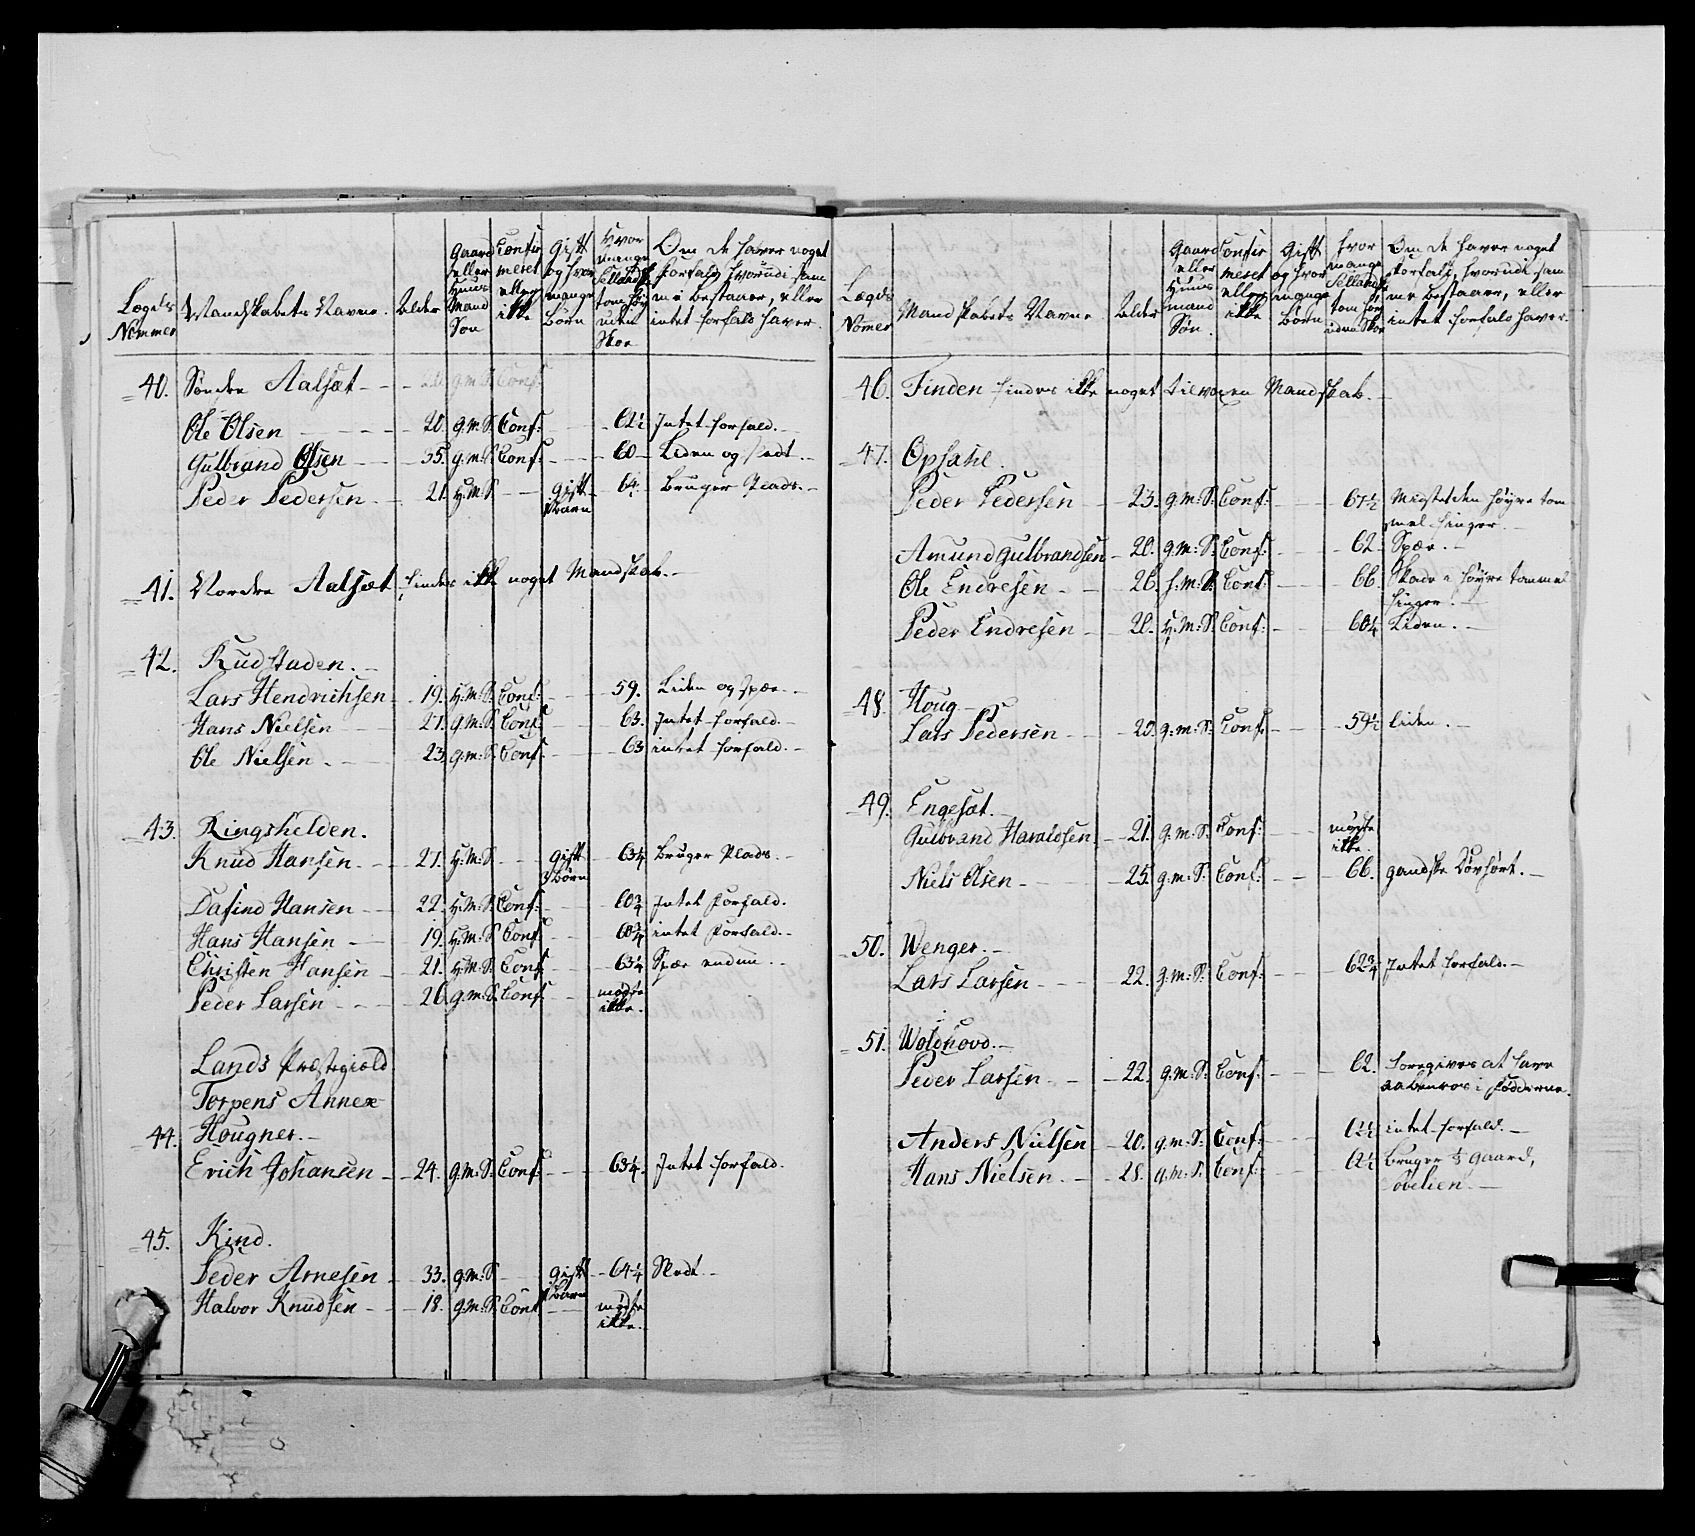 Lægds Nummer | Mandskabets Navne. | Alder | Gaard eller Huus Mand Søn | Confirmeret eller ikke | Gift og hvor mange Børn | Hvor mange Sellandsk tom høy uden Skoe | Om de haver noget forfald, hvorudi samme bestaaer, eller intet forfald haver.
40. Søndre Aalsæt - - - 20 g.m.S. Conf:
Ole Olsen - - - 20. g.m.S. Conf: - - 61½ Intet forfald. -
Gulbrand Olsen - - 35. g.m.S. Conf: - - 60 - Liden og skedt. -
Peder Pedersen - - 21. H.M.S. - - gift 1 Barn - 64. Bruger Plads. -
41. Nordre Aalsæt, findes ikke noget Mandskab. -
42. Rudstaden. -
Lars Hendrichsen. - 19. H.M.S. Conf: - - 59. Liden og spæe. -
Hans Nielsen - - 27. g.m.S. Conf: - - 63. Intet forfald. -
Ole Nielsen - - 23. g.m.S. Conf: - - 63 intet forfald. -
43. Ringshelden.
Knud Hansen - - 27. H.M.S. - - gift 3 Børn - 63¼ Bruger Plads. -
Dafind Hansen - - 22. H.M.S. Conf: - - 60¾ Intet Forfald.
Hans Hansen - - 19. H.M.S. Conf: - - 60¾ intet Forfald. -
Christen Hansen - - 21. H.M.S. Conf: - - 63¼ Spæe endnu. -
Peder Larsen - - 26. g.m.S. Conf: - - mødte ikke.
Lands Præstegield
Torpens Annex
44. Hougner. -
Erich Johansen - - 24. g.m.S. Conf: - - 63¼. Intet forfald.
45. Kind.
Peder Arnesen - 33. g.m.S. - - gift 1 Barn - 64¼ Skedt -
Halvor Knudsen - - 18. g.m.S. Conf - - mødte ikke.
Lægds Nomer | Mandskabets Navne | Alder | Gaard eller Huus mand Søn. | Confirmeret eller ikke | Gift og hvor mange Børn | hvor mange Sellandsk tom høy uden Skoe | Om de haver noget forfald, hvorudi samme bestaaer, eller intet forfald haver.
46. Finden findes ikke noget tilvoxen Mandskab. -
47. Opsahl.
Peder Pedersen - - 23. g.m.S. Conf: - - 67½ Mistet den høyre tommel finger. -
Amund Gulbrandsen - 20. g.m.S. Conf: - - 62. Spæe. -
Ole Endresen - - 26. h.m.S. Conf: - - 66. Skade i høyre tommel finger. -
Peder Endresen - - 20. H.M.S. Conf: - - 60¼ Liden. -
48. Houg -
Lars Pedersen - - 23. g.m.S. Conf: - - 59½ liden. -
49. Engesæt.
Gulbrand Haraldsen. - 21. g.m.S. Conf: - - mødte ikke.
Niels Olsen - - 25. g.m.S. Conf: - - 66. gandske Døvhørt. -
50. Wenger. -
Lars Larsen - - 22. g.m.S. Conf: - - 62¾ Intet forfald. -
51. Woldhovd. -
Peder Larsen - - 22. g.m.S. Conf: - - 62. foregives at have aabenroe i Fødderne.
Anders Nielsen - 20. g.m.S. Conf: - - 61½ intet forfald. -
Hans Nielsen. - 28. g.m.S. Conf: - - 62½ Bruger ½ gaard,